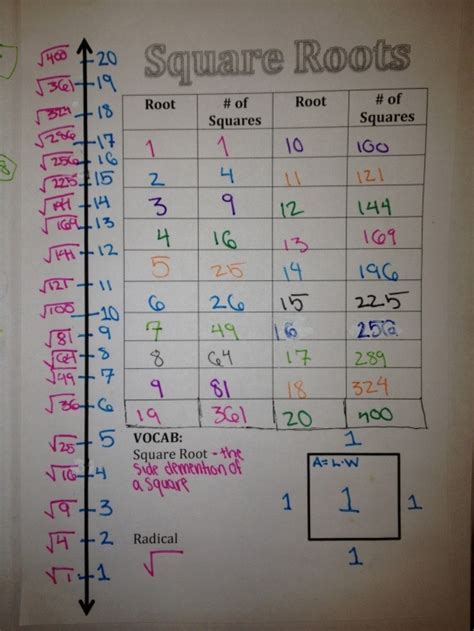 Square Roots
Root # of Squares Root # of Squares
1 1 10 100
2 4 11 121
3 9 12 144
4 16 13 169
5 25 14 196
6 26 15 225
7 49 16 256
8 64 17 289
9 81 18 324
19 361 20 400
√400 20
√361 19
√324 18
17
√256 16
√225 15
14
√169 13
12
√121 11
√100 10
√81 9
√64 8
√49 7
√36 6
√25 5
√16 4
√9 3
√4 2
√1 1
VOCAB:
Square Root - the
side demention of
a square
Radical
√
1
A=L·W
1 1 1
1